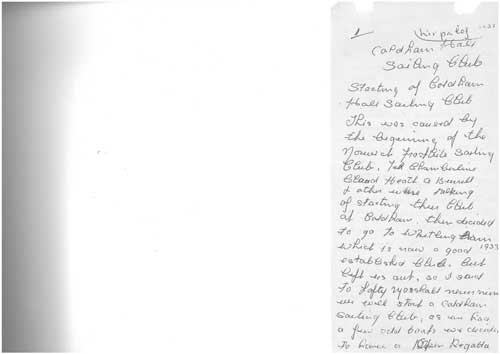 1
Coldham Hall
Sailing Club
Starting of Coldham
Hall Sailing Club
This was caused by
the beginning of the
Norwich Frostbite Sailing
Club. Ted Chamberline
Heath a
& other were talking
of starting their Club
at Coldham, then decided
to go to Whitlingham
which is now a good 1937
established Club. But
left us out, so I said
to Lofty never mind
we will start a Coldham
Sailing Club, as we had
a few odd boats we decided
to have a Regatta